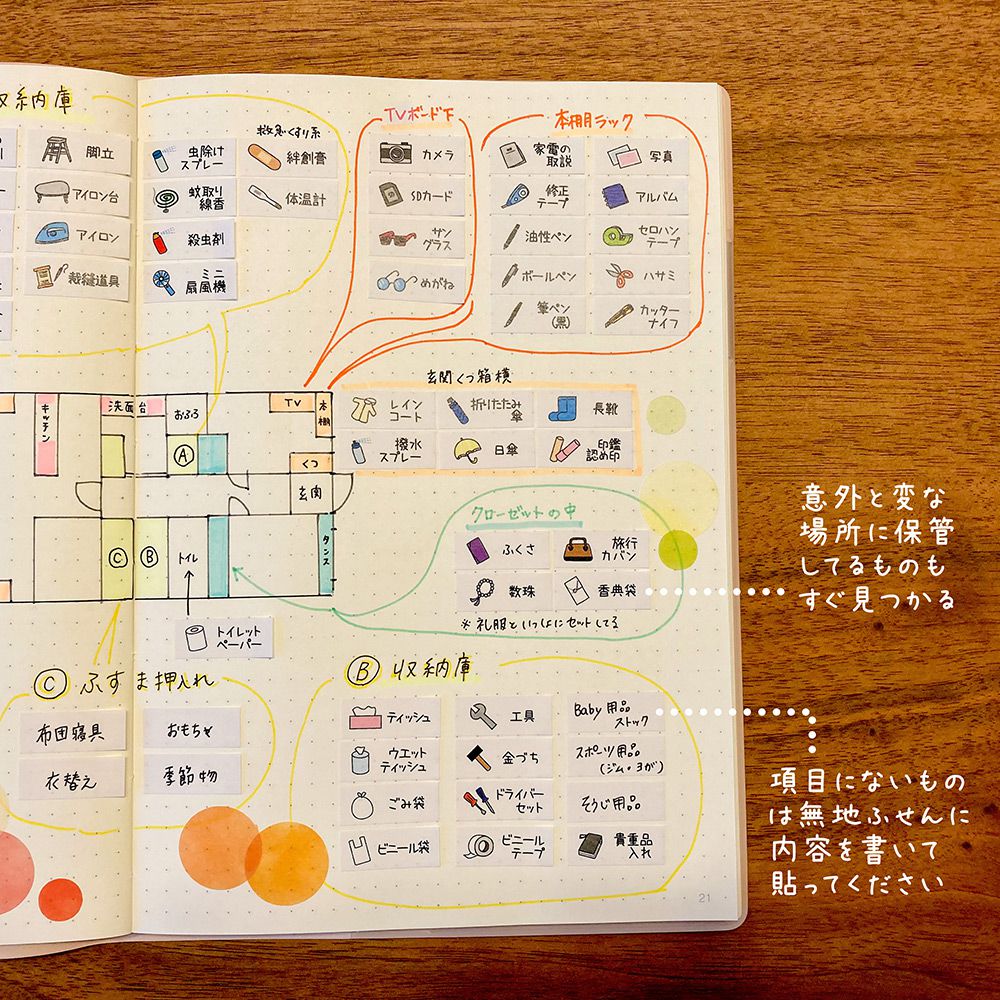 収納庫
脚立
アイロン台
アイロン
裁縫道具
虫除け
スプレー
蚊取り
線香
殺虫剤
ミニ
扇風機
救急くすり系
絆創膏
体温計
TVボード下
カメラ
SDカード
サン
グラス
めがね
本棚ラック
家電の
取説
修正
テープ
油性ペン
ボールペン
筆ペン
(黒)
写真
アルバム
セロハン
テープ
ハサミ
カッター
ナイフ
キッチン
洗面台
おふろ
TV
本棚
A
くつ
玄関
C
B
トイレ
タンス
トイレット
ペーパー
玄関くつ箱横
レイン
コート
折りたたみ
傘
長靴
撥水
スプレー
日傘
印鑑
認め印
クローゼットの中
ふくさ
旅行
カバン
数珠
香典袋
※礼服といっしょにセットしてる
意外と変な
場所に保管
してるものも
すぐ見つかる
C ふすま押入れ
布団寝具
おもちゃ
衣替え
季節物
B 収納庫
ティッシュ
ウエット
ティッシュ
ごみ袋
ビニール袋
工具
金づち
ドライバー
セット
ビニール
テープ
Baby用品
ストック
スポーツ用品
(ジム・ヨガ)
そうじ用品
貴重品
入れ
項目にないもの
は無地ふせんに
内容を書いて
貼ってください
21